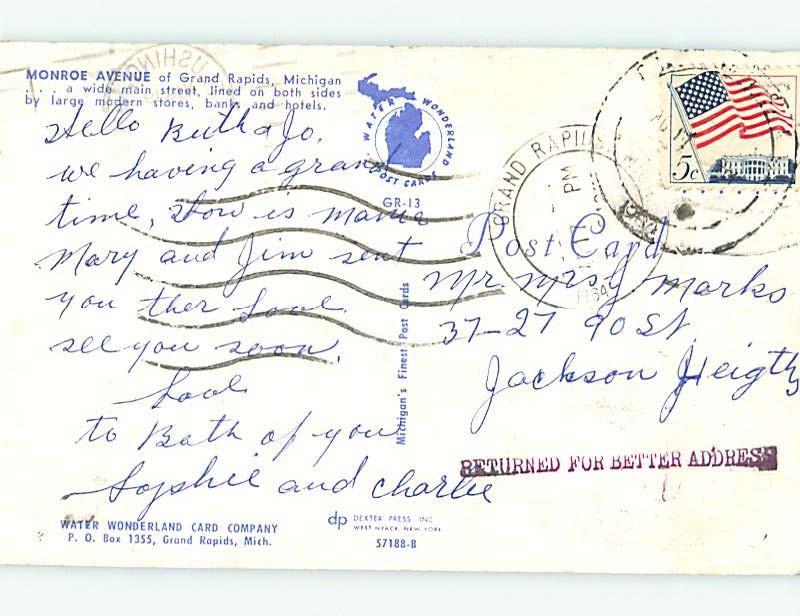 MONROE AVENUE of Grand Rapids, Michigan
. . . a wide main street, lined on both sides
by large modern stores, banks and hotels.
Hello Ruth & Jo.
we having a grand
time, How is mame
Mary and Jim sent
you ther Love
see you soon.
Love
to Bath of you
Sophie and Charlie
WATER WONDERLAND CARD COMPANY
P. O. Box 1355, Grand Rapids, Mich.
WATER WONDERLAND
POST CARDS
GR-13
Michigan's Finest Post Cards
dp DEXTER PRESS, INC.
WEST NYACK, NEW YORK
57188-B
GRAND RAPIDS
PM
1964
5c
Post Card
Mr. Mrs J Marks
37-27 90 St.
Jackson Heigths
RETURNED FOR BETTER ADDRESS